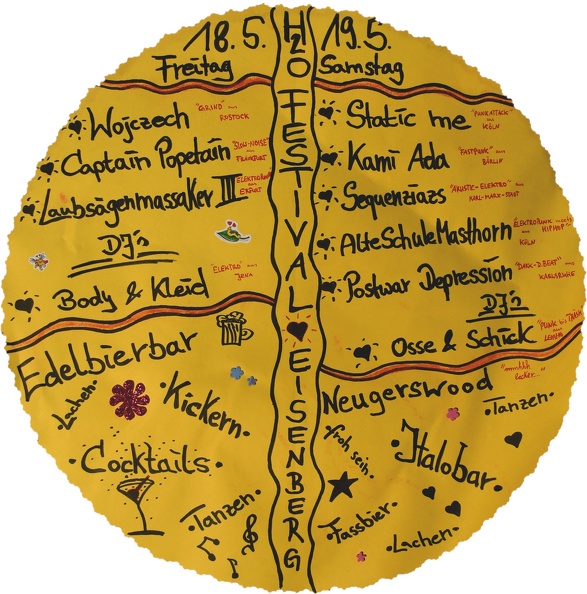 18.5.
Freitag
Wojczech
"GRIND" aus
ROSTOCK
Captain Popetain
"SLOW-NOISE"
aus
FRANKFURT
Laubsägenmassaker III
ERFURT
DJ's
Body & Kleid
"ELEKTRO" aus
JENA
Edelbierbar
Lachen·
·Kickern·
·Cocktails·
·Tanzen·
H2O FESTIVAL EISENBERG
19.5.
Samstag
Static me
"PUNKATTACK"
aus
KÖLN
Kami Ada
"FASTPUNK" aus
BERLIN
Sequenziazs
"AKUSTIK-ELEKTRO" aus
KARL-MARX-STADT
AlteSchuleMasthorn
KÖLN
Postwar Depression
"DARK-D.BEAT" aus
KARLSRUHE
DJ's
Osse & Schick
"PUNK bis TRASH"
aus
LEIPZIG
Neugerswood
"mmhhh
lecker..."
·Tanzen·
·froh sein·
·Italobar·
·Fassbier·
·Lachen·